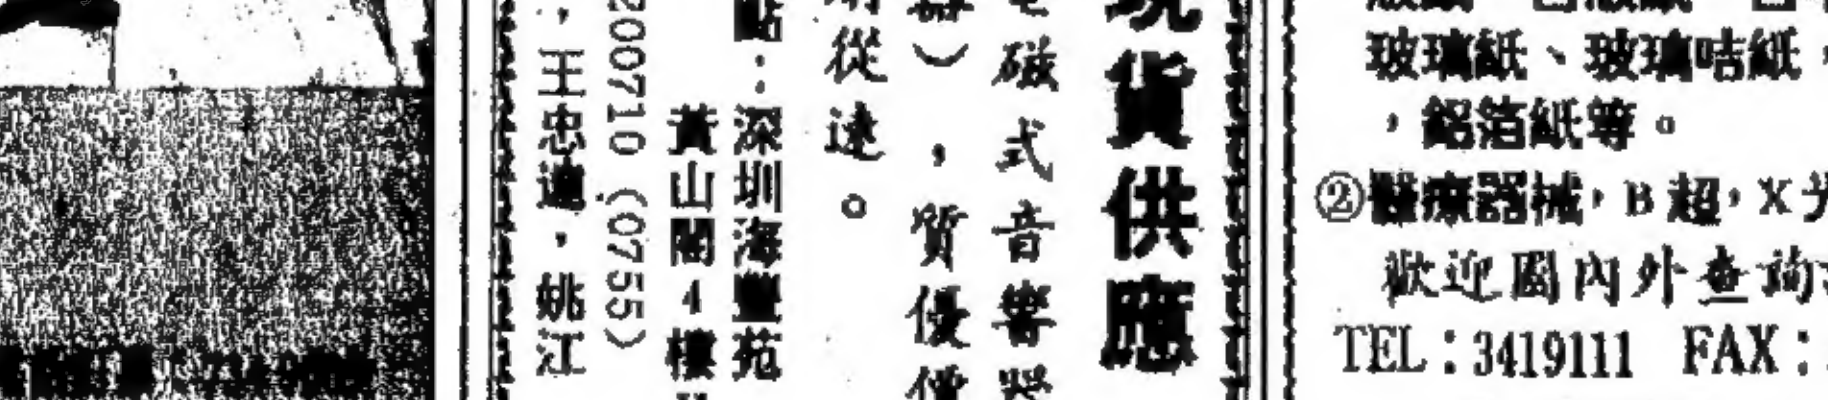 現貨供應
電磁式音響器
器），質優價
從速。
點：深圳海豐苑
黃山閣4樓
200710（0755）
，王忠蓮，姚江
玻璃紙、玻璃咭紙，
，鋁箔紙等。
②醫療器械，B超，X光
歡迎國內外查詢
TEL：3419111 FAX：